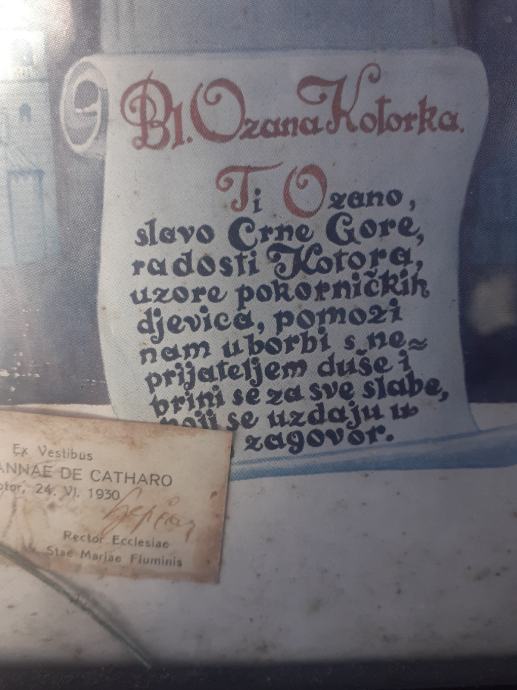 Bl. Ozana Kotorka.
Ti Ozano,
slavo Crne Gore,
radosti Kotora,
uzore pokorničkih
djevica, pomozi
nam u borbi s ne~
prijateljem duše i
brini se za sve slabe,
koji se uzdaju u
zagovor.
Ex Vestibus
ANNAE DE CATHARO
otor, 24. VI. 1930
Rector Ecclesiae
Stae Mariae Fluminis